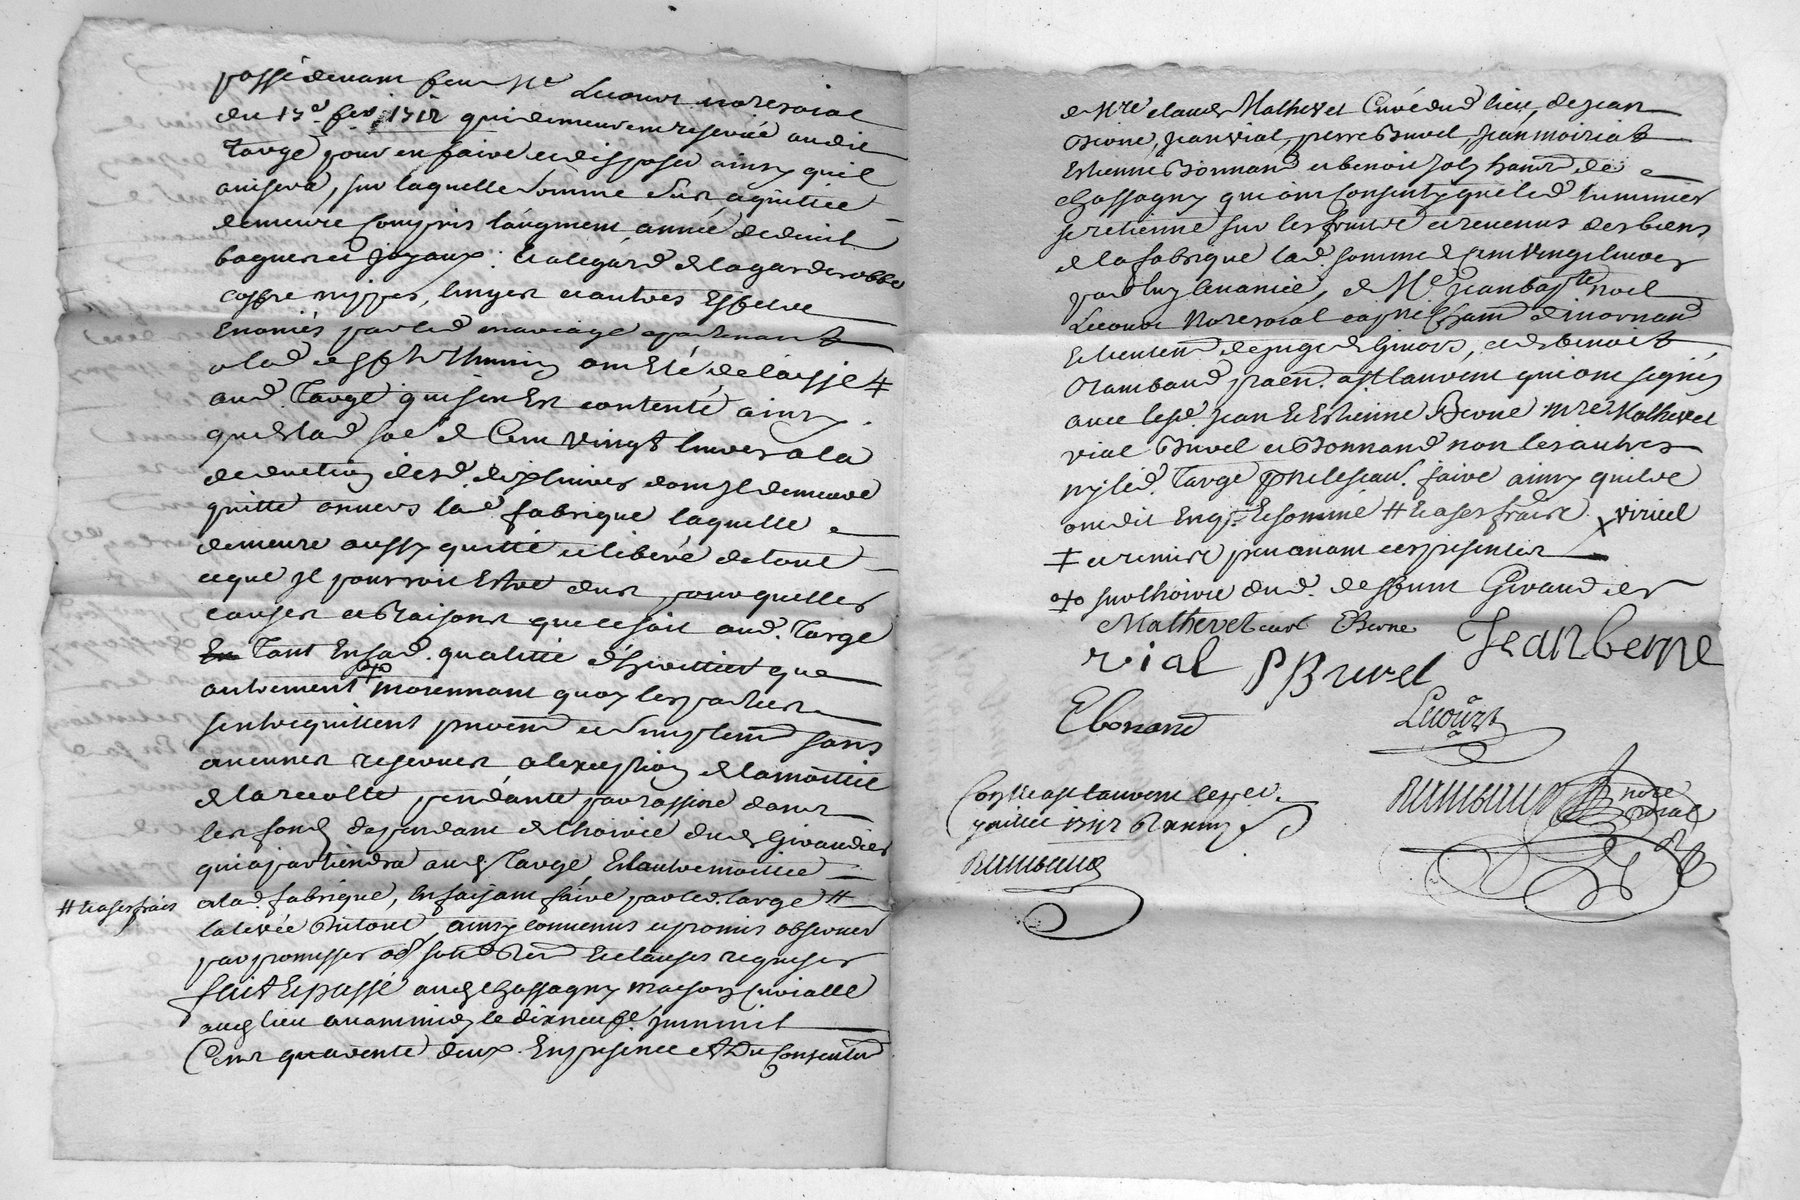 passé devant feu Me Lecourt no.re roial
du 13e fév. 1712 qui demeurent reservée audit
Targe pour en faire et disposer ainsy quil
avisera, sur laquelle somme d'eux aquittée
demeure compris l'augment année de deuil
bagues et joyaux: et a legard de la garderobbe
coffre nippes, linges et autres
Enoncés par led. mariage apartenant
a lad. Thunin ont Eté delaissé ‡
aud. Targe qui s'en Est contenté ainsy
que de lad. so.e de Cent vingt livres a la
deduction desd. dix livres dont Il demeure
quitte envers lad. fabrique laquelle
demeure aussy quitte et liberé de tout
ceque Il pourroit Estre dub, pour quelles
causes et Raisons que ce soit aud. Targe
Tant En sad. qualitté d'heritier que
autrement moiennant quoy les parties
sentrequittent purem.t et simplem.t sans
aucunes reserves a lexception de la moittié
de la recolte pendante par racine dans
les fonds dependant de lhoirie dud. Giraudier
qui apartiendra aud. Targe, Et lautre moittié
a lad. fabrique, En faisant faire par led. targe #
# et a ses frais
la levée du tout, ainsy convenus et promis observer
par promesses obl. soum. Ren. et clauses requises
fait Et passé aud. Chassagny maison Curialle
aud. lieu avant midy le dixneufe. juin mil
Cent quarente deux En presence et Du Consentem.t
de Mre claude Mathevet Curé dud. lieu, de jean
Berne, jean vial, pierre Buvel, jean moiriat
Estienne Bonnand et benoit joly hants. de
Chassagny qui ont Consenty que led. luminier
se retienne sur les fruits et revenus des biens
de la fabrique lad. somme de cent vingt livres
par luy avancée, de Me. Jean bapte. noel
Lecourt No.re roial capne. Chatn. de mornand
et lieutent. de juge de Givors, et de benoit
Rambaud, praen. a st. laurent qui ont signés
avec lesd. jean Et Estienne Berne mre. Mathevet
vial Buvel et Bonnand non les autres
ny led. Targe p.r ne le scav. faire ainsy quil
ont dit Enq. Et sommé # et a ses frais x
‡ et remise
sur lhoirie dud. deffunt Giraudier
Mathevet curé EBerne Jean berne
vial PBuvel
Ebonand Lecourt
Con.lle a st laurent le
juillet 1742 R
Rambaud
Rambaud no.re roial